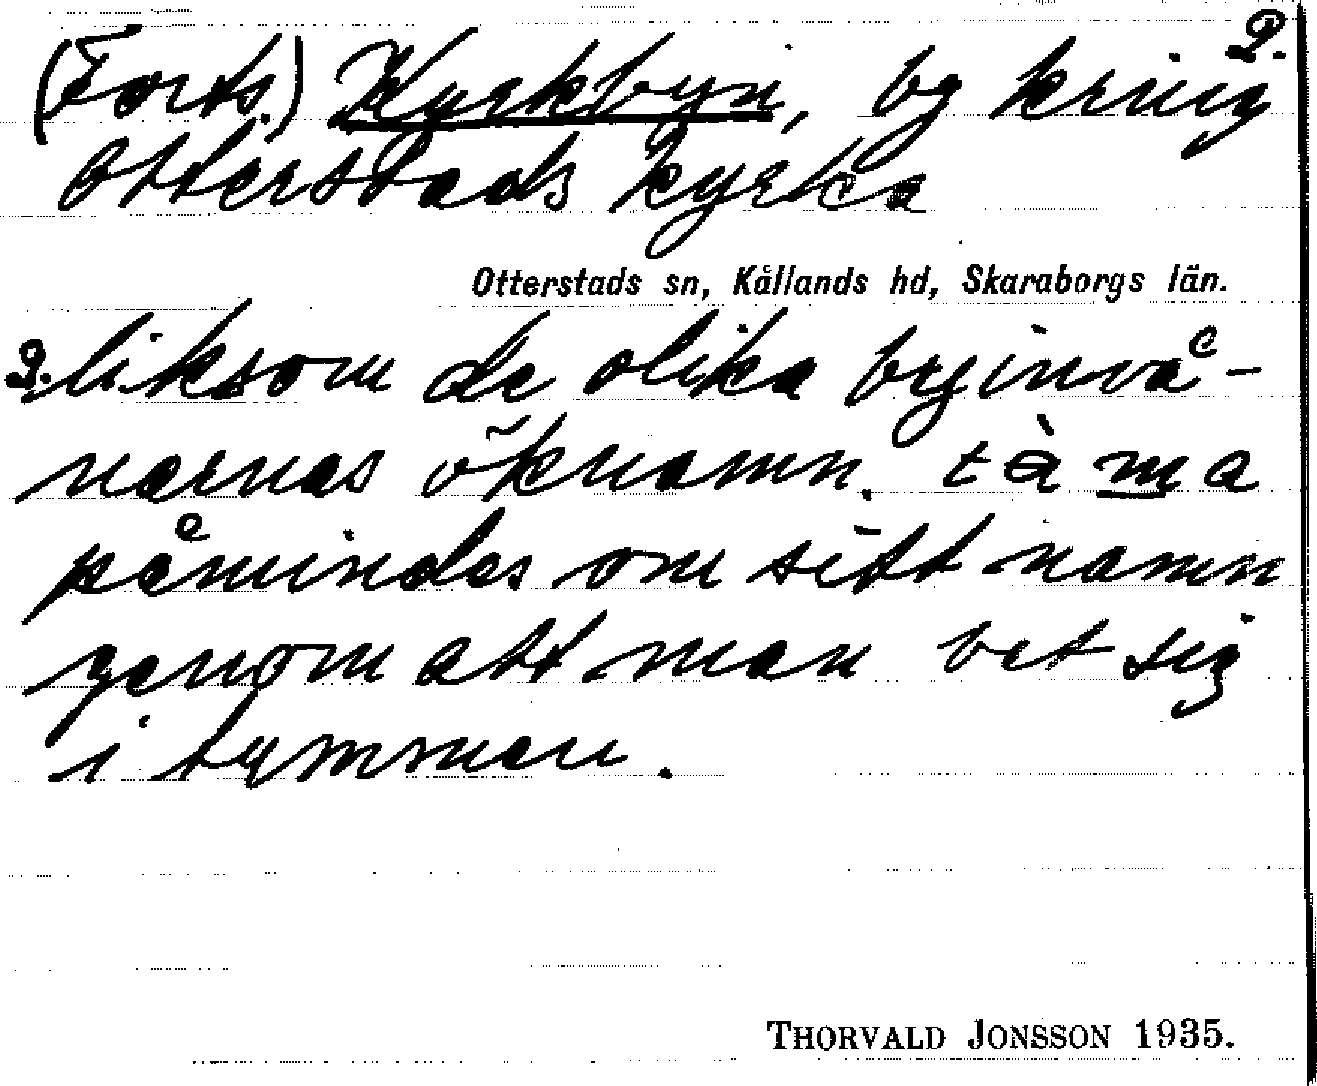 2.
(Forts.) Kyrkbyn, by kring
Otterstads kyrka
Otterstads sn, Kållands hd, Skaraborgs län.
2. liksom de olika byinvå-
narnas öknamn. tàma
påmindes om sitt namn
genom att man bet sig
i tummen.
THORVALD JONSSON 1935.